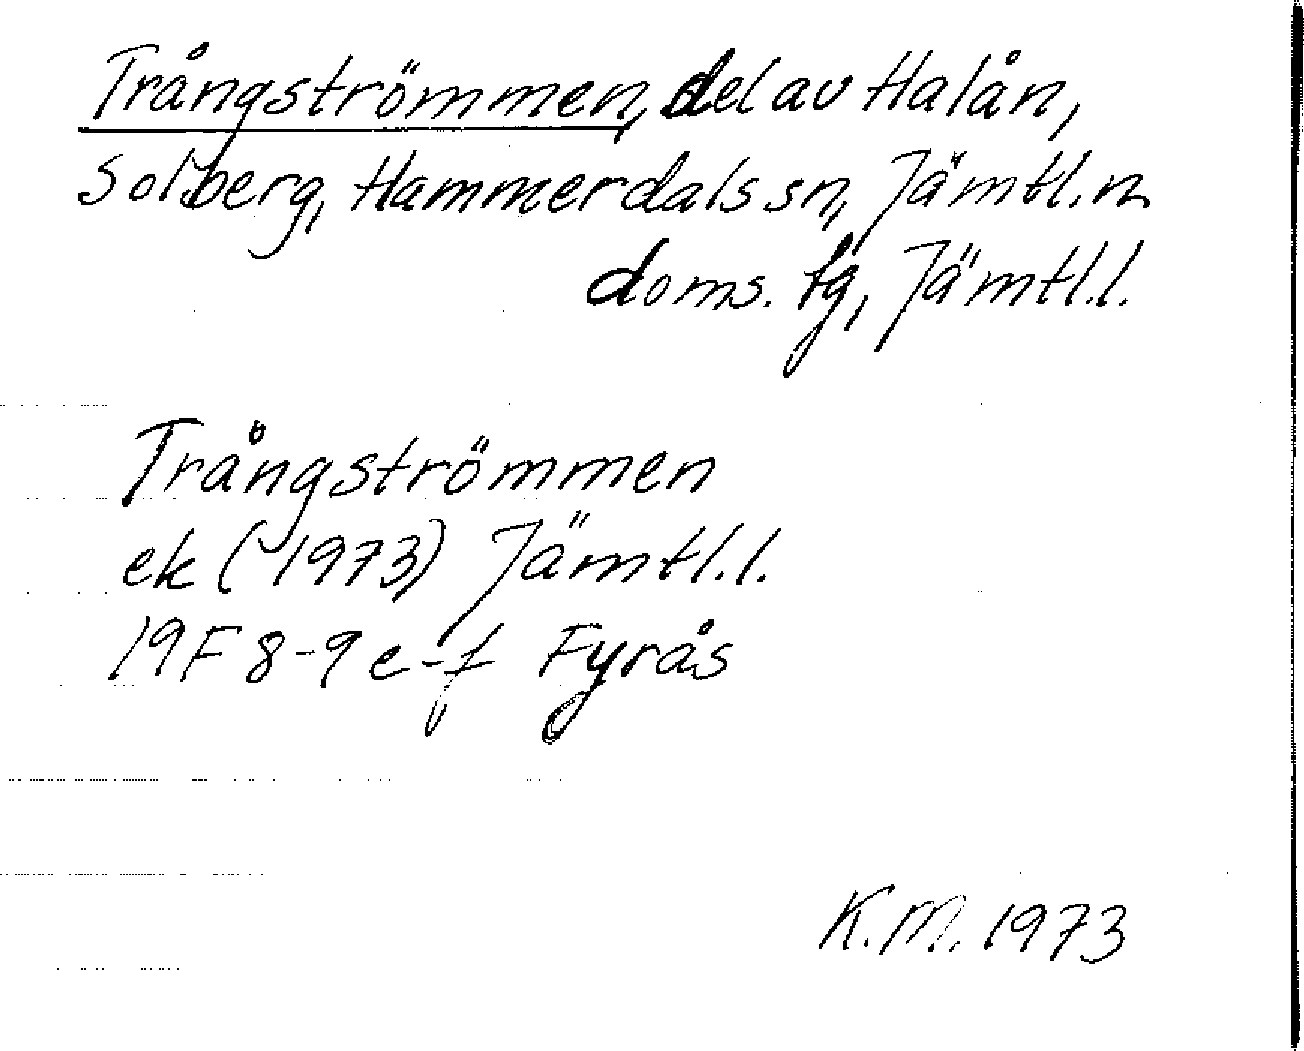 Trångströmmen, del av Halån,
Solberg, Hammerdals sn, Jämtl. n.
doms. tg, Jämtl. l.
Trångströmmen
ek (1973) Jämtl. l.
19F 8-9 e-f Fyrås
K. M. 1973